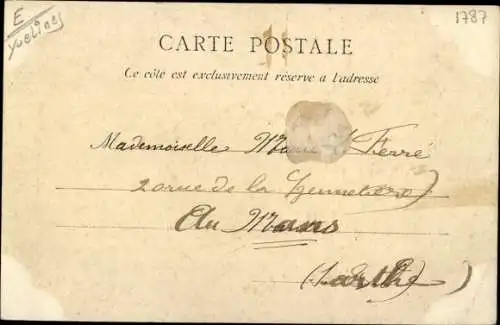 E
Yvelines
1787
CARTE POSTALE
Ce côté est exclusivement réservé a l'adresse
Mademoiselle Marie Fierré
20 rue de la
Au Mans
(Sarthe)